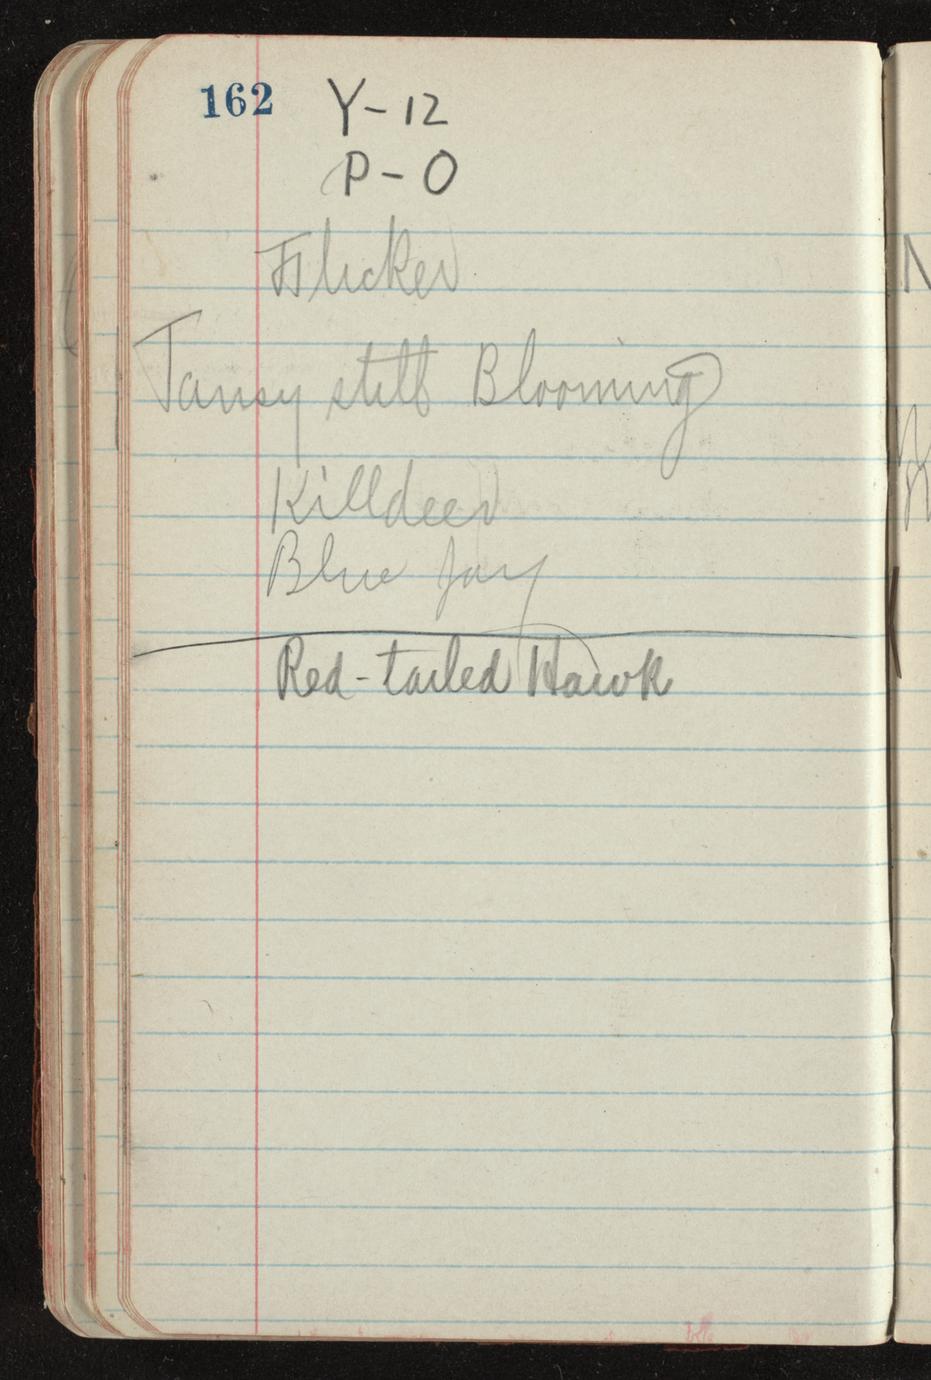 162 Y-12
P-0
Flicker
Tansy still Blooming
Killdeer
Blue Jay
Red-tailed Hawk